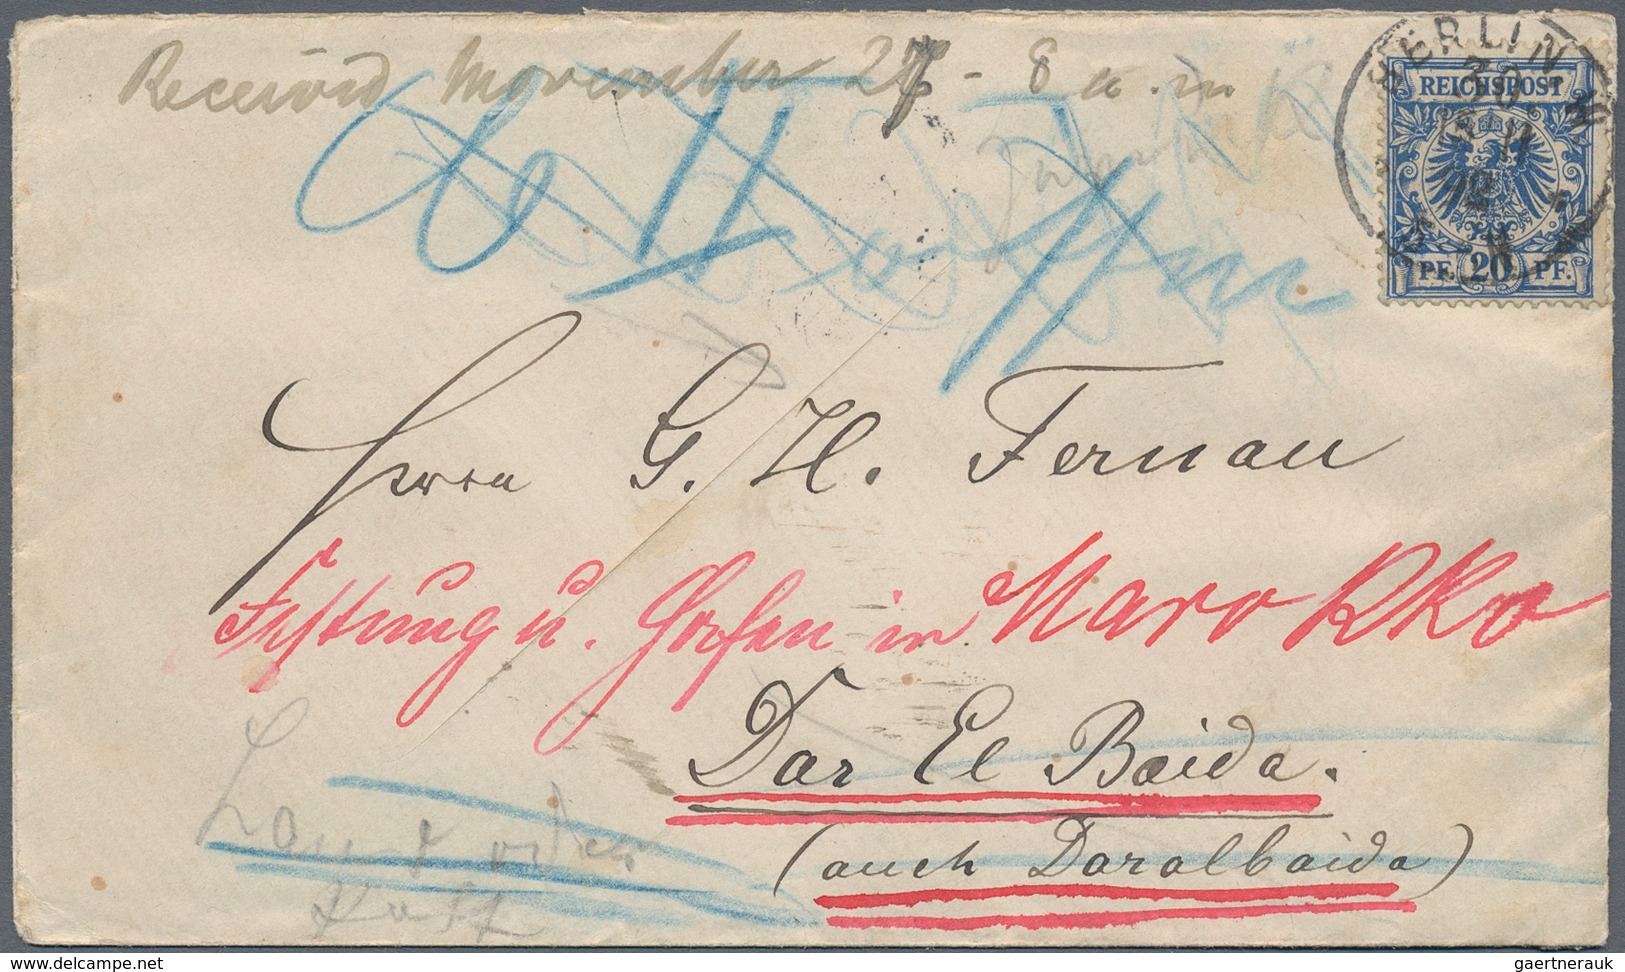 Received November 27 - 8 a.m
BERLIN W
30
11
REICHSPOST
PF. 20 PF.
Herrn G. H. Fernau
Festung u. Hafen in Marokko
Dar El Baida.
(auch Daralbaida)
Land oder
Post
delcampe.net
gaertnerauk